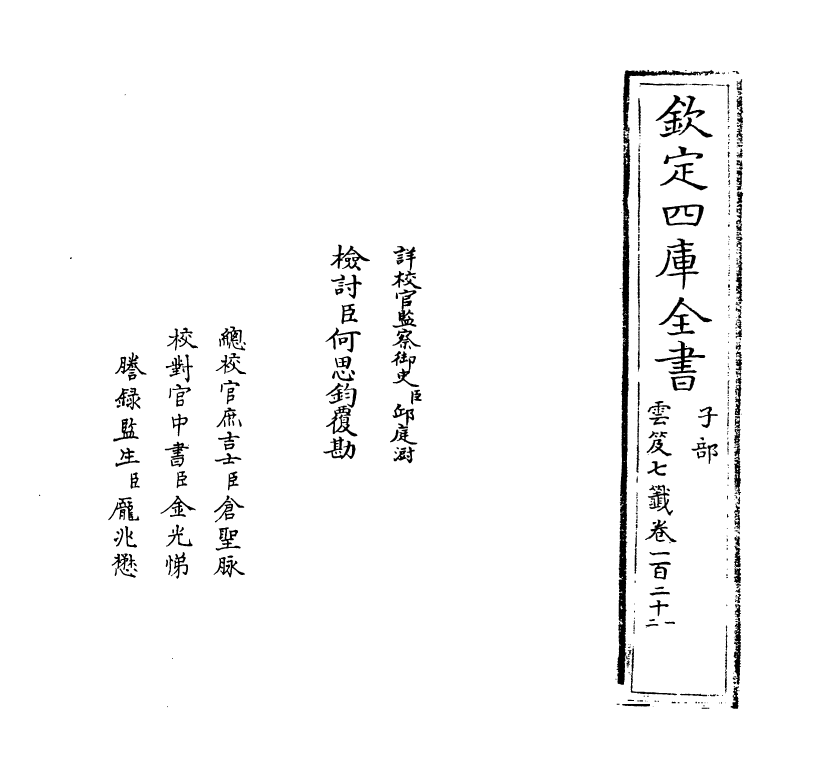 欽定四庫全書
子部
雲笈七籤卷一百二十一二
詳校官監察御史臣邱庭澍
檢討臣何思鈞覆勘
總校官庶吉士臣倉聖脉
校對官中書臣金光悌
謄錄監生臣龐兆懋